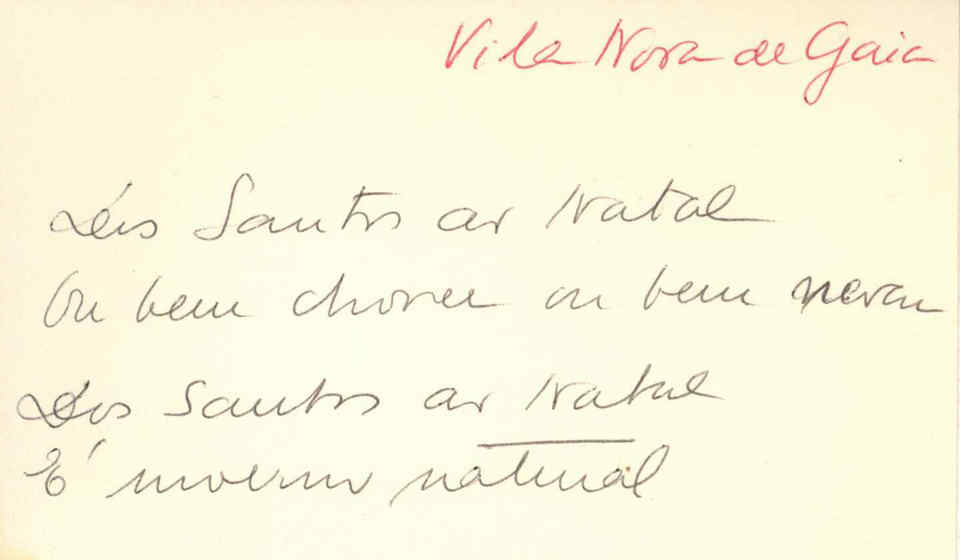 Vila Nova de Gaia
Dos Santos ao Natal
Ou bem chover ou bem nevar
Dos Santos ao Natal
É inverno natural